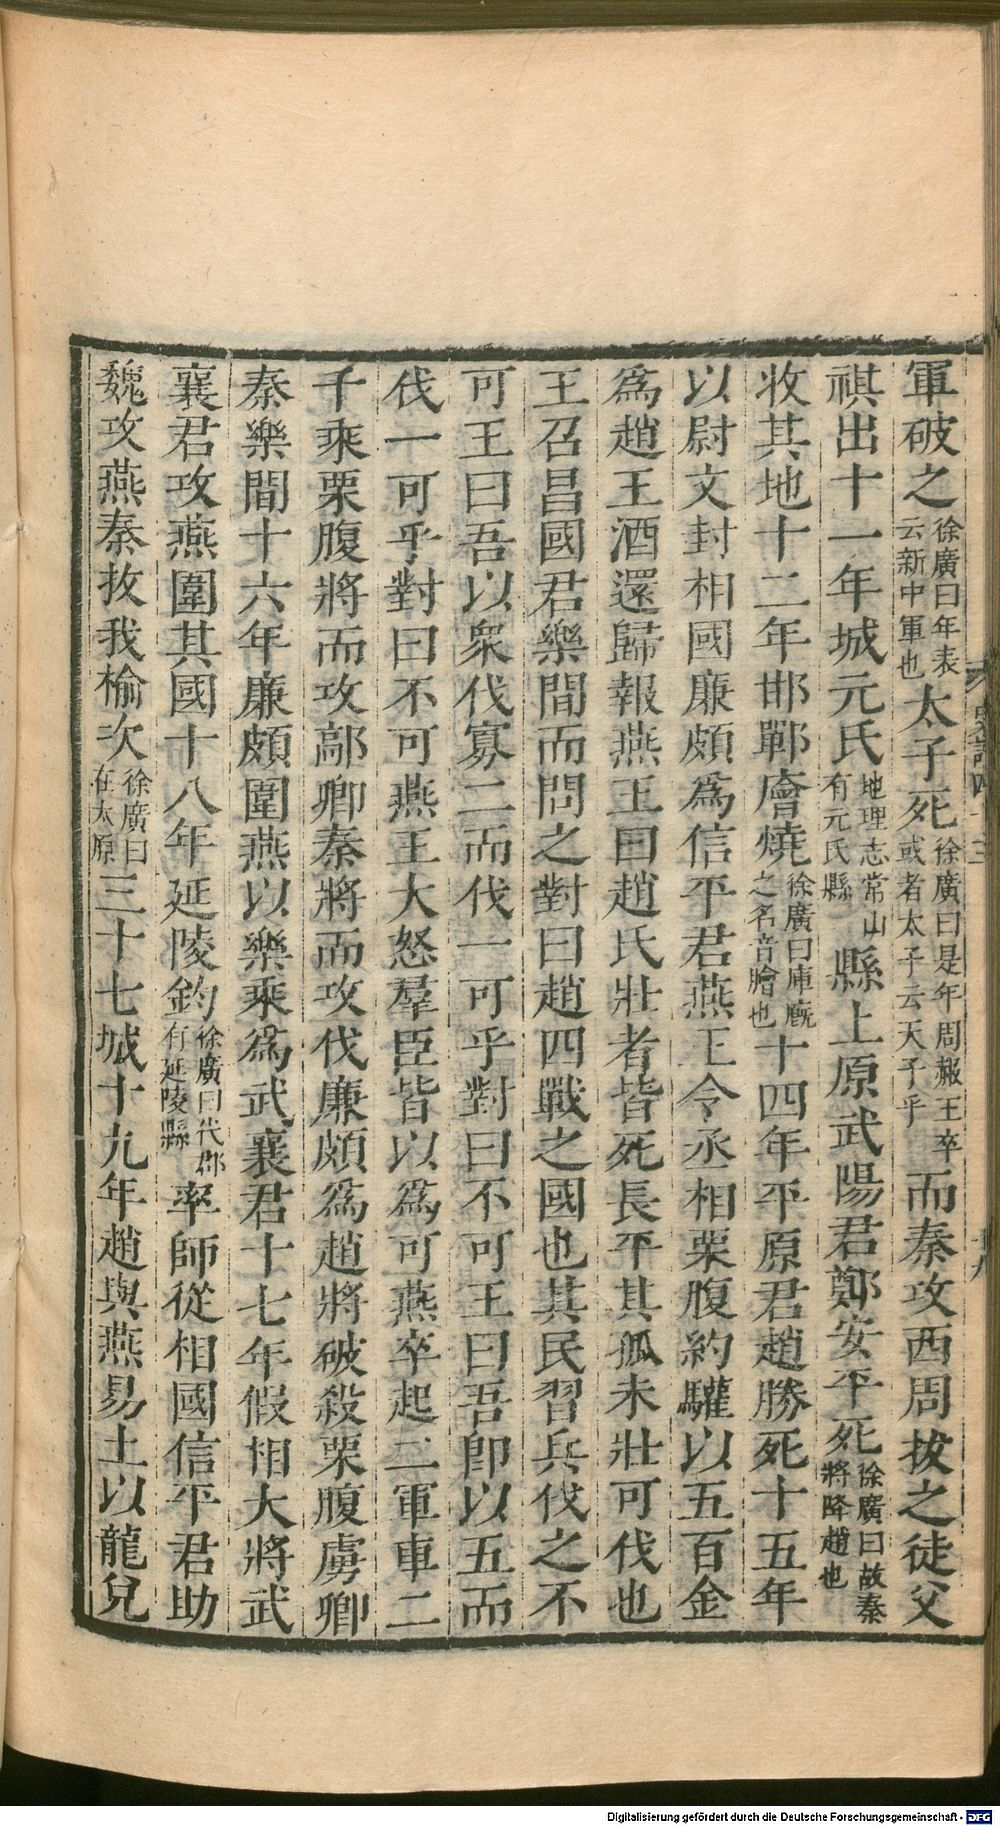 軍破之徐廣曰年表云新中軍也太子死徐廣曰是年周赧王卒或者太子云天子乎而秦攻西周拔之徒父
祺出十一年城元氏地理志常山有元氏縣縣上原武陽君鄭安平死徐廣曰故秦將降趙也
收其地十二年邯鄲廥燒徐廣曰庫廐之名音膾也十四年平原君趙勝死十五年
以尉文封相國廉頗爲信平君燕王令丞相栗腹約驩以五百金
爲趙王酒還歸報燕王曰趙氏壯者皆死長平其孤未壯可伐也
王召昌國君樂間而問之對曰趙四戰之國也其民習兵伐之不
可王曰吾以衆伐寡二而伐一可乎對曰不可王曰吾卽以五而
伐一可乎對曰不可燕王大怒羣臣皆以爲可燕卒起二軍車二
千乘栗腹將而攻鄗卿秦將而攻伐廉頗爲趙將破殺栗腹虜卿
秦樂間十六年廉頗圍燕以樂乘爲武襄君十七年假相大將武
襄君攻燕圍其國十八年延陵鈞徐廣曰代郡有延陵縣率師從相國信平君助
魏攻燕秦拔我榆次徐廣曰在太原三十七城十九年趙與燕易土以龍兌
Digitalisierung gefördert durch die Deutsche Forschungsgemeinschaft - DFG